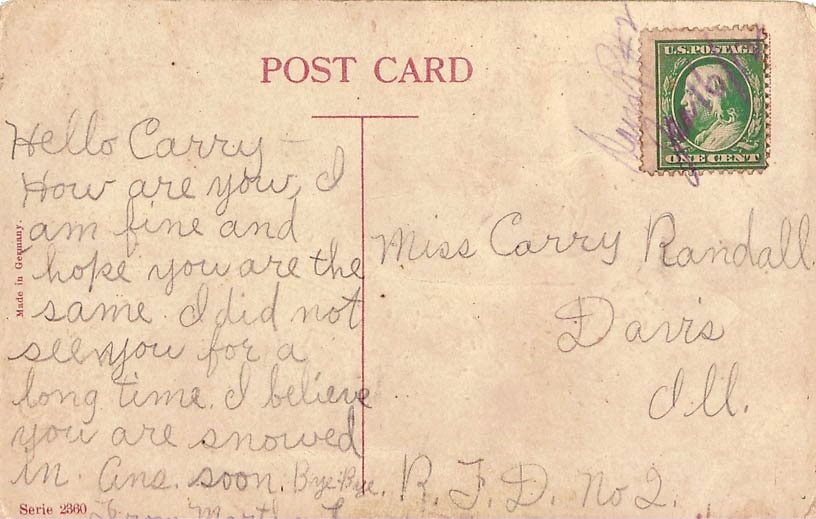 POST CARD
U.S. POSTAGE
ONE CENT
Hello Carry –
How are you, I
am fine and
hope you are the
same. I did not
see you for a
long time. I believe
you are snowed
in. Ans. soon. Bye-Bye.
From Martha
Miss Carry Randall
Davis
Ill.
R. F. D. No 2.
Made in Germany.
Serie 2360